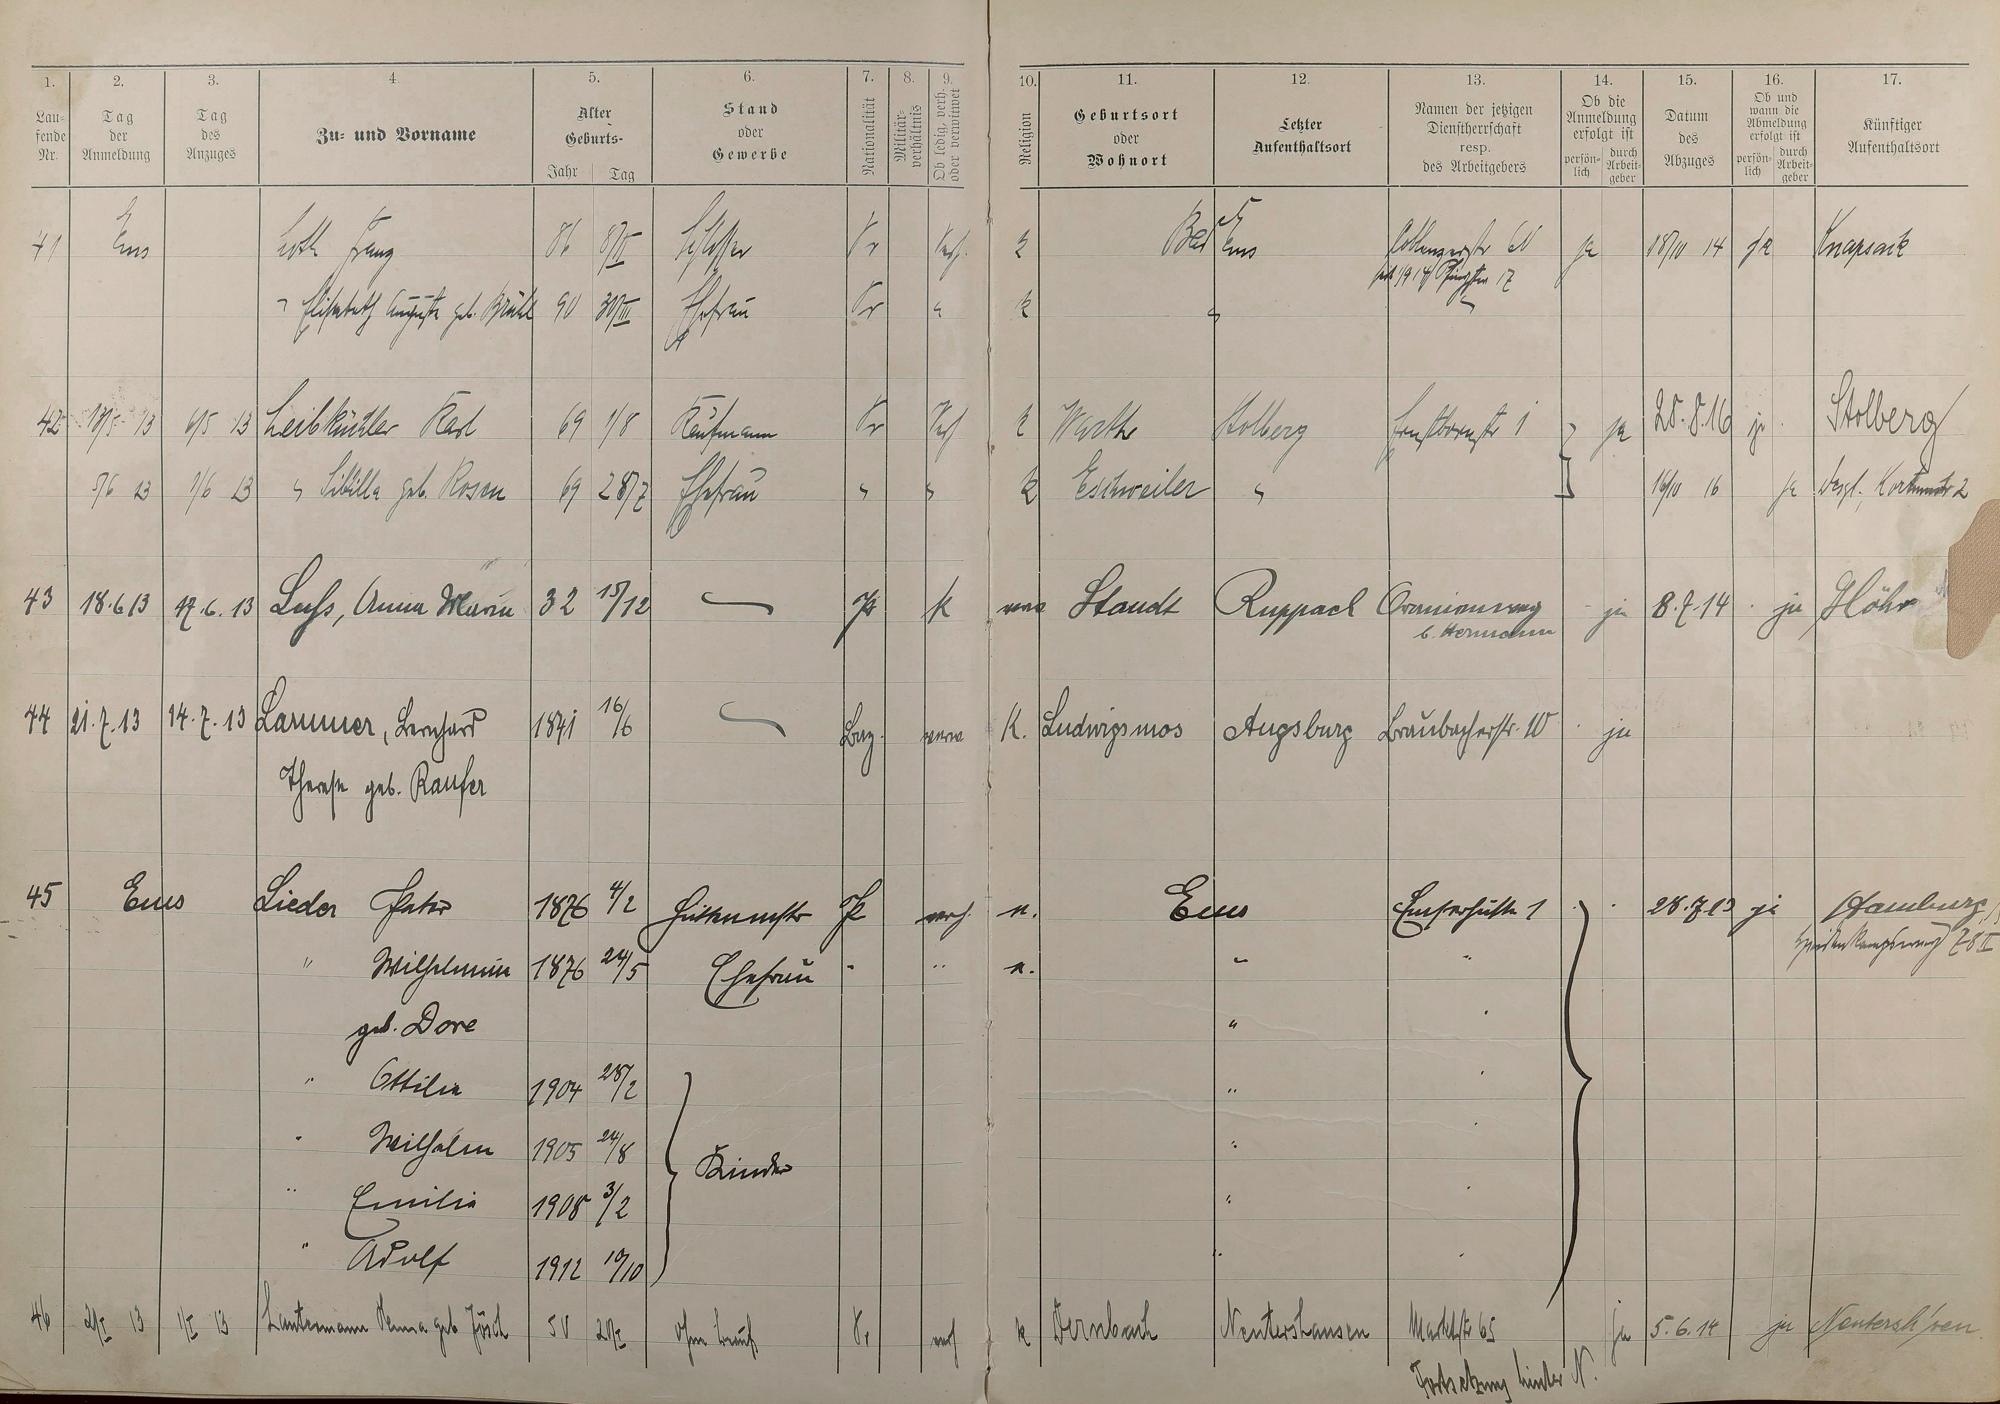 1. 2. 3. 4 5. 6. 7. 8. 9. 10. 11. 12. 13. 14. 15. 16. 17.
Lau-fende Nr.
Tag der Anmeldung
Tag des Anzuges
Zu- und Vorname
Alter Geburts- Jahr Tag
Stand oder Gewerbe
Nationalität
Militär-verhältnis
Ob ledig, verh. oder verwitwet
Religion
Geburtsort oder Wohnort
Letzter Aufenthaltsort
Namen der jetzigen Dienstherrschaft resp. des Arbeitgebers
Ob die Anmeldung erfolgt ist persön-lich durch Arbeit-geber
Datum des Abzuges
Ob und wann die Abmeldung erfolgt ist persön-lich durch Arbeit-geber
Künftiger Aufenthaltsort
41 Ems Loth Franz 86 8/II Schlosser Pr Verh. k Bad Ems 60 ja 18/10 14 ja Knapsack
" Elisabeth Auguste geb. Brühl 90 30/III Ehefrau Pr " k "
42 13/5 13 6/5 13 Leibküchler Karl 69 1/8 Kaufmann Pr Verh k Stolberg 1 ja 28.8.16 ja Stolberg
5/6 13 1/6 13 " Sibilla geb. Rosen 69 28/7 Ehefrau " " k Eschweiler " 16/10 16 ja desgl. 2
43 18.6 13 17.6.13 Anna Maria 32 15/12 Pr k verw Staudt Ruppach Oranienweg ja 8.7.14 ja Höhr
b. Hermann
44 21.7.13 14.7.13 Lammer, Bernhard 1841 16/6 Bay. verw K. Ludwigsmos Augsburg Braubacherstr. 10 ja
Therese geb. Raufer
45 Ems Lieder Peter 1876 4/2 Hüttenmstr Pr verh. Ems Emserhütte 1 28.7.13 ja Hamburg
" Wilhelmine 1876 24/5 Ehefrau " " " " 78 II
geb. Dore "
" Ottilie 1904 28/2 "
" Wilhelm 1905 24/8 Kinder "
" Emilie 1908 3/2 "
" Adolf 1912 10/10 "
46 13 13 Lautermann Anna geb. 50 ohne Beruf Pr verh k Dernbach Nentershausen Marktstr 65 ja 5.6.14 ja Nentersh'sen
Fortsetzung hinter N.